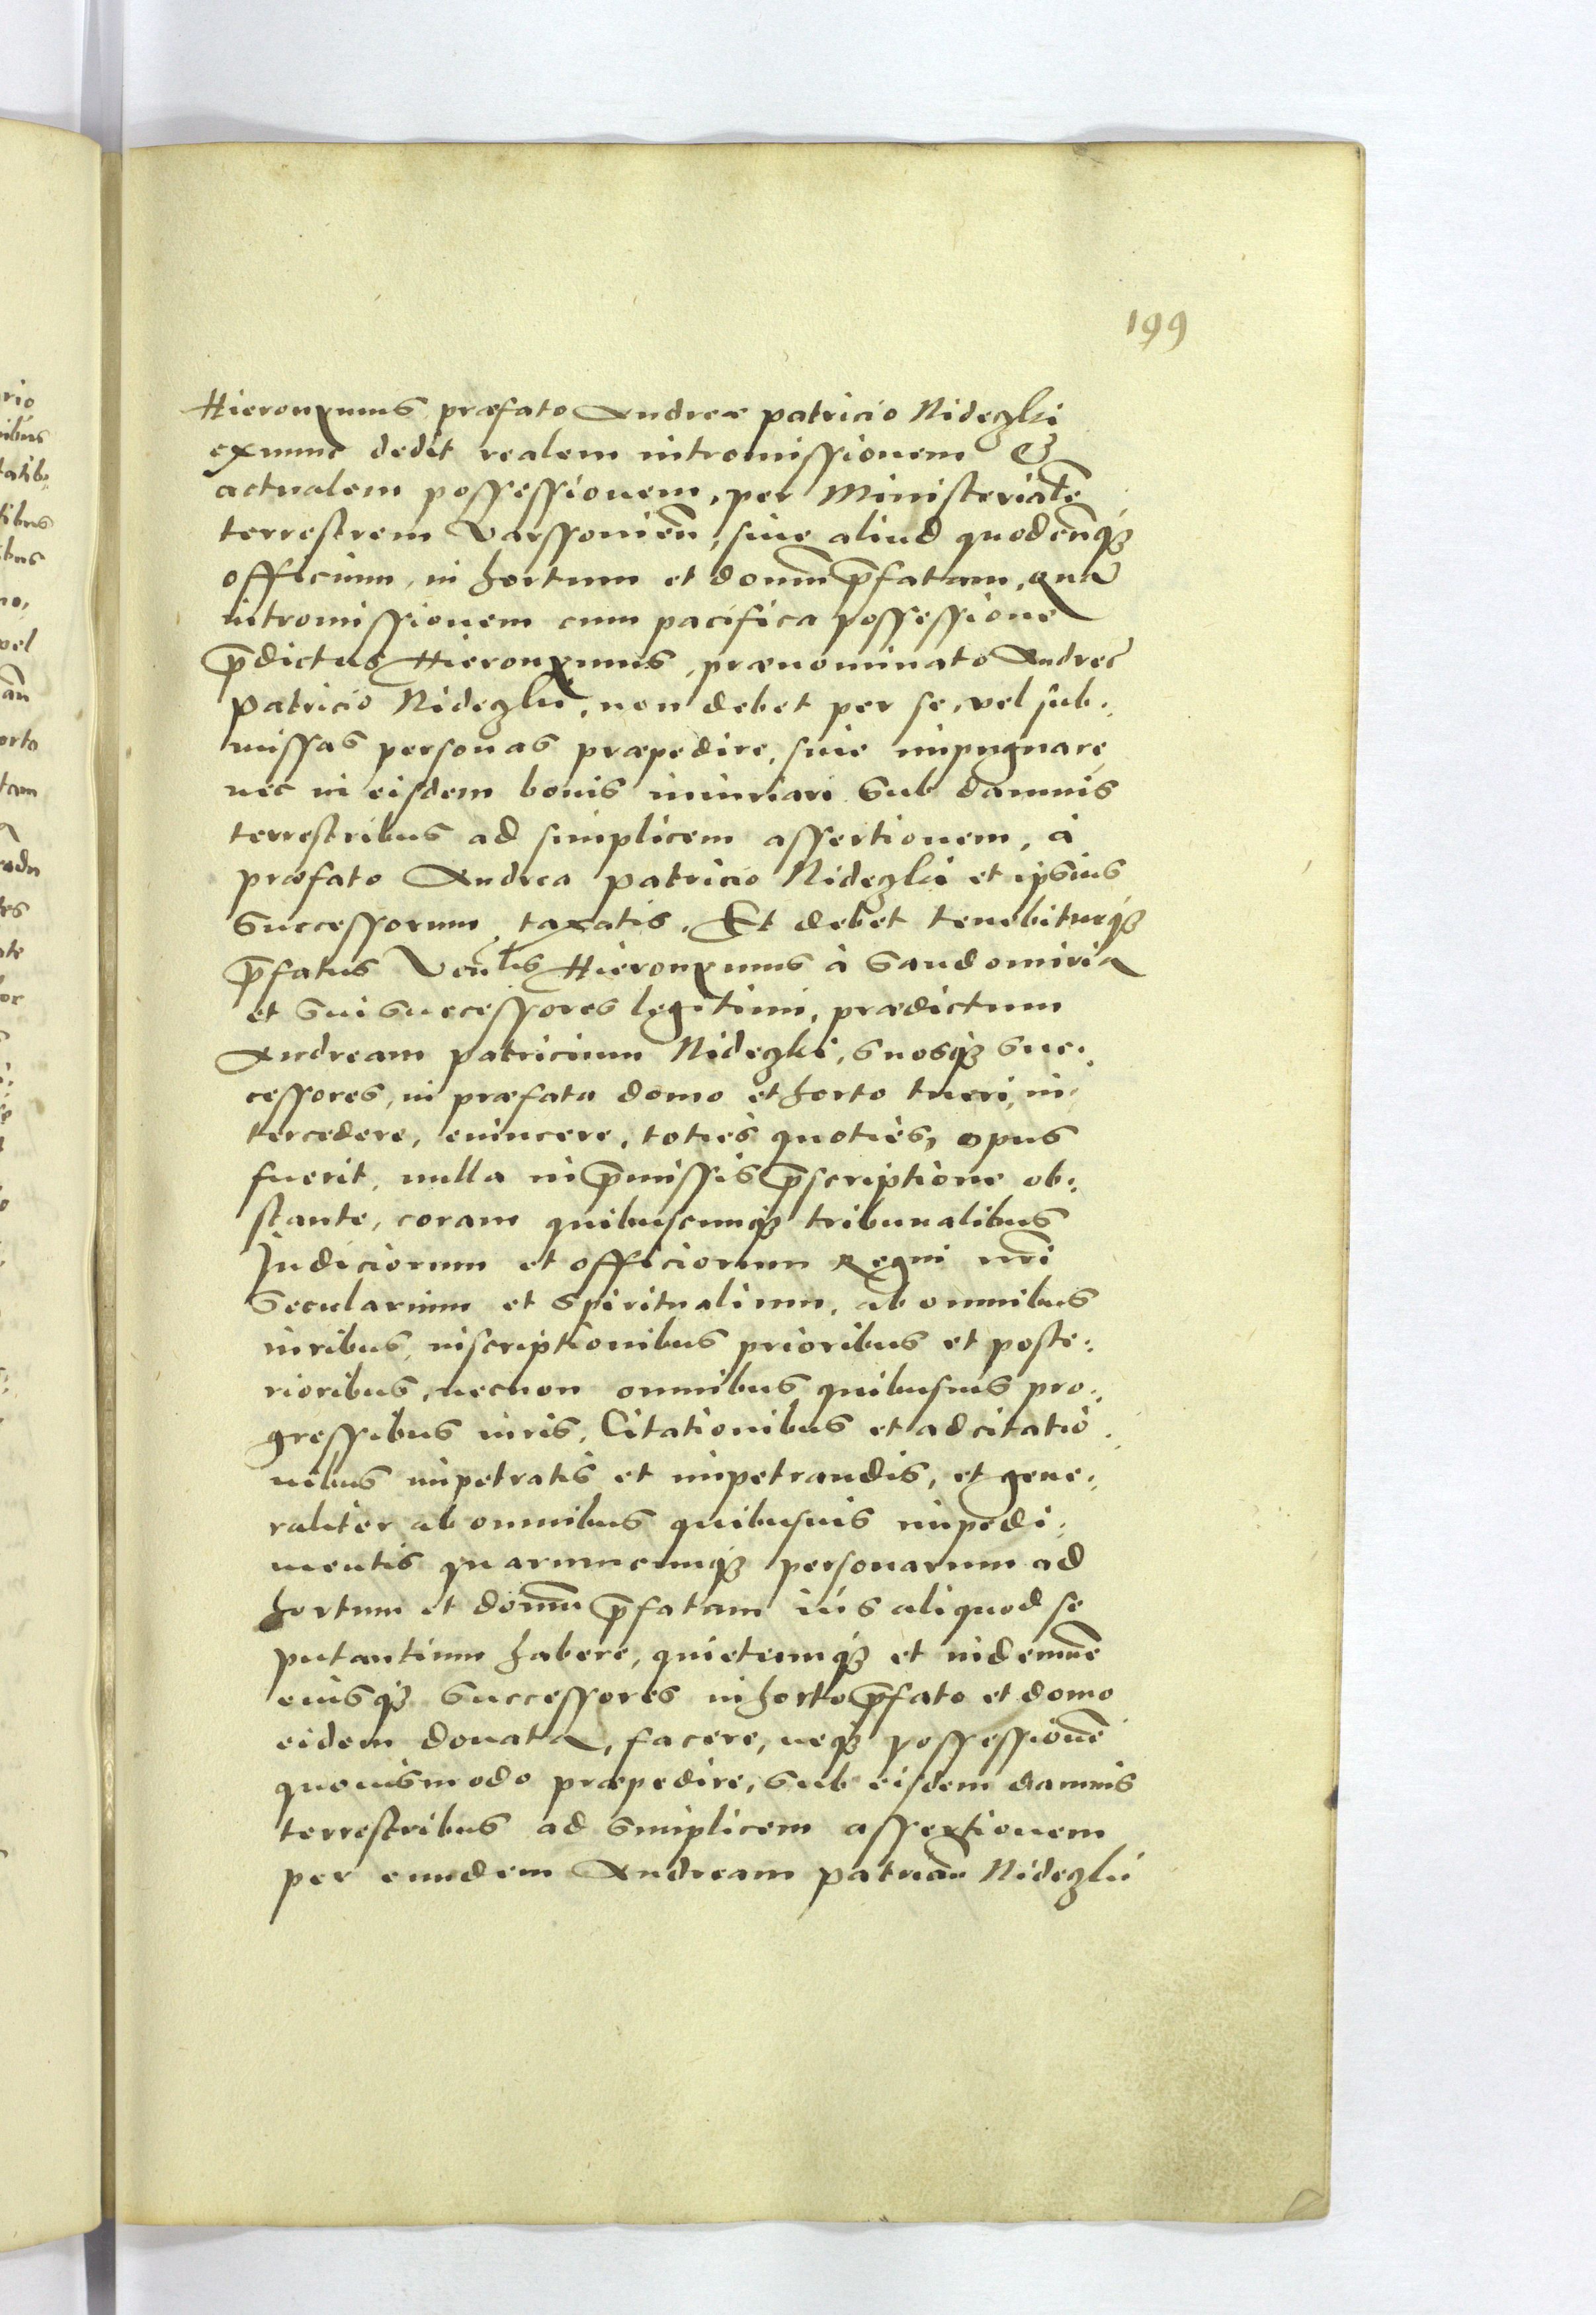 199
Hieronymus præfato Andreæ patricio Nideczki
exnunc dedit realem intromissionem &
actualem possessionem, per Ministerialē
terrestrem Varssovieñ, siue aliud quodcūq3
officium, in hortum et domū p̄fatam, quā
intromissionem cum pacifica possessione
p̄dictus Hieronymus, prænominato Andreę
Patricio Nideczki, non debet per se, vel sub:
missas personas præpedire, siue impugnare,
nec in eisdem bonis iniuriari sub damnis
terrestribus ad simplicem assertionem, à
præfato Andrea Patricio Nideczki et ipsius
successorum taxatis. Et debet tenebiturq3
p̄fatus Veñlis Hieronymus à Sandomiria
et sui successores legitimi, prædictum
Andream Patricium Nideczki, suosq3 suc:
cessores, in præfata domo et horto tueri, in:
tercedere, euincere, toties quoties, opus
fuerit, nulla in p̄missis p̄scriptione ob:
stante, coram quibuscunq3 tribunalibus
Judiciorum et officiorum Regni nr̄i
Secularium et Spiritualium, ab omnibus
iuribus, inscriptionibus prioribus et poste:
rioribus, necnon omnibus quibusuis pro:
gressibus iuris, Citationibus et adcitatio:
nibus impetratis et impetrandis, et gene:
raliter ab omnibus quibusuis impedi:
mentis quarumcunq3 personarum ad
hortum et domū p̄fatam iús aliquod se
putantium habere, quietumq3 et indemnē
eiusq3 successores in horto p̄fato et domo
eidem donata, facere, neq3 possessionē
quouismodo præpedire, sub eisdem damnis
terrestribus ad simplicem assertionem
per eundem Andream patriciū Nideczki